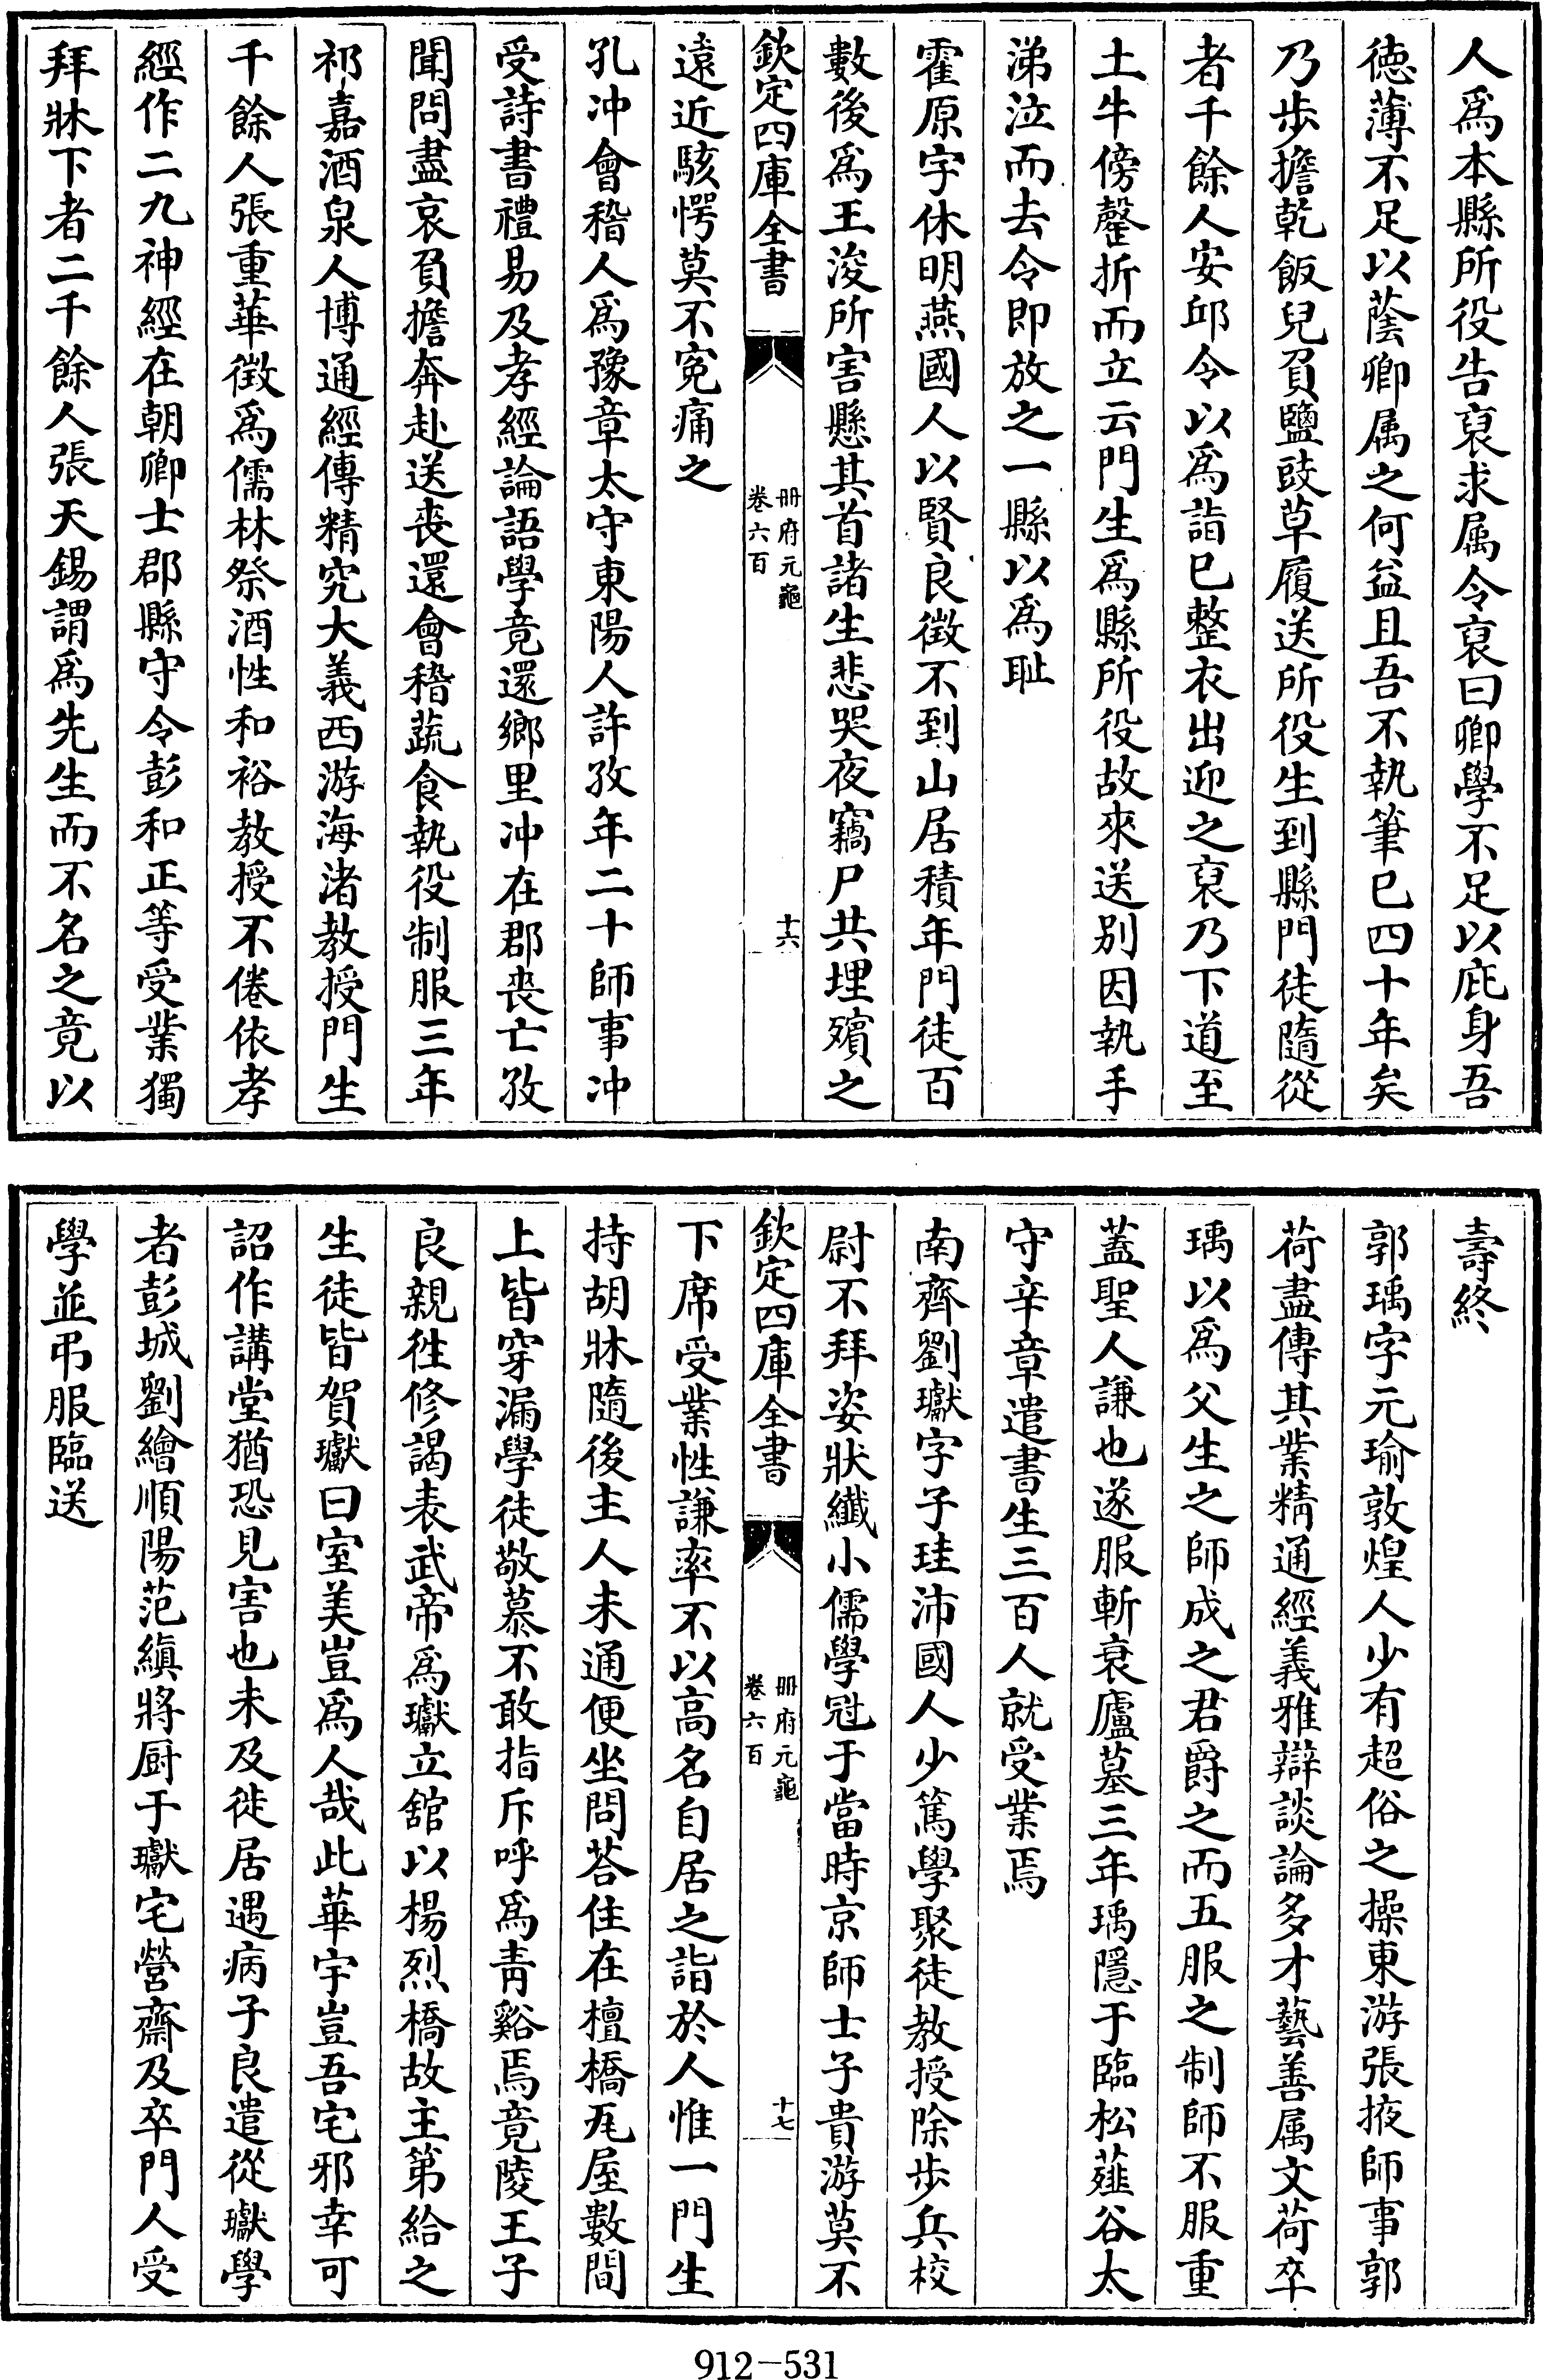 人爲本縣所役告裒求属令裒曰卿學不足以庇身吾
徳薄不足以蔭卿属之何益且吾不執筆已四十年矣
乃步擔乾飯兒負鹽豉草履送所役生到縣門徒隨從
者千餘人安邱令以爲詣已整衣出迎之裒乃下道至
土牛傍磬折而立云門生爲縣所役故來送别因執手
涕泣而去令即放之一縣以爲耻
霍原字休明燕國人以賢良徴不到山居積年門徒百
數後爲王浚所害懸其首諸生悲哭夜竊尸共埋殯之
欽定四庫全書
册府元龜
卷六百
十六
遠近駭愕莫不寃痛之
孔冲會稽人爲豫章太守東陽人許孜年二十師事冲
受詩書禮易及孝經論語學竟還鄉里冲在郡喪亡孜
聞問盡哀負擔奔赴送喪還會稽蔬食執役制服三年
祁嘉酒泉人博通經傳精究大義西游海渚教授門生
千餘人張重華徴爲儒林祭酒性和裕教授不倦依孝
經作二九神經在朝卿士郡縣守令彭和正等受業獨
拜牀下者二千餘人張天錫謂爲先生而不名之竟以
壽終
郭瑀字元瑜敦煌人少有超俗之操東游張掖師事郭
荷盡傳其業精通經義雅辯談論多才藝善属文荷卒
瑀以爲父生之師成之君爵之而五服之制師不服重
蓋聖人謙也遂服斬衰廬墓三年瑀隱于臨松薤谷太
守辛章遣書生三百人就受業焉
南齊劉瓛字子珪沛國人少篤學聚徒教授除步兵校
尉不拜姿狀纎小儒學冠于當時京師士子貴游莫不
欽定四庫全書
册府元龜
卷六百
十七
下席受業性謙率不以高名自居之詣於人惟一門生
持胡牀隨後主人未通便坐問荅住在檀橋瓦屋數間
上皆穿漏學徒敬慕不敢指斥呼爲青谿焉竟陵王子
良親徃修謁表武帝爲瓛立舘以楊烈橋故主第給之
生徒皆賀瓛曰室美豈爲人哉此華宇豈吾宅邪幸可
詔作講堂猶恐見害也未及徙居遇病子良遣從瓛學
者彭城劉繪順陽范縝將厨于瓛宅營齋及卒門人受
學並弔服臨送
912-531